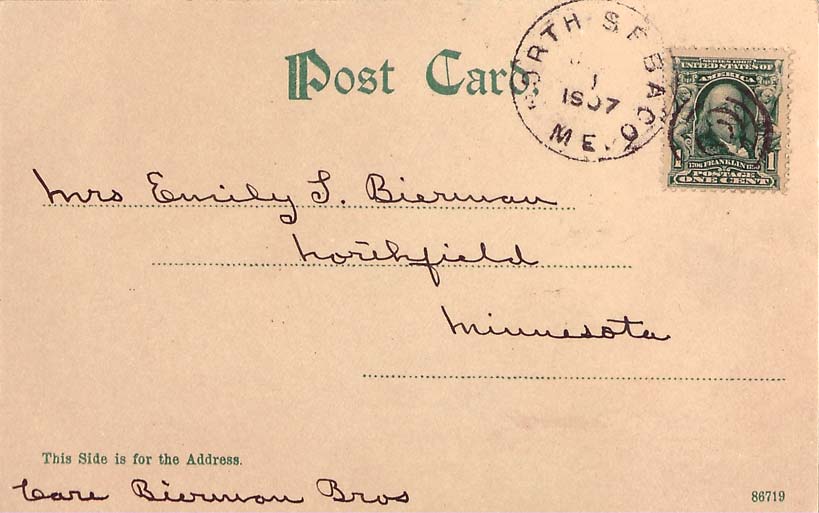 Post Card.
NORTH SEBAGO
1
1907
ME.
SERIES 1902
UNITED STATES OF
AMERICA
1706 FRANKLIN 1790
1 1
POSTAGE
ONE CENT
Mrs Emily J. Bierman
Northfield
Minnesota
This Side is for the Address.
Care Bierman Bros
86719